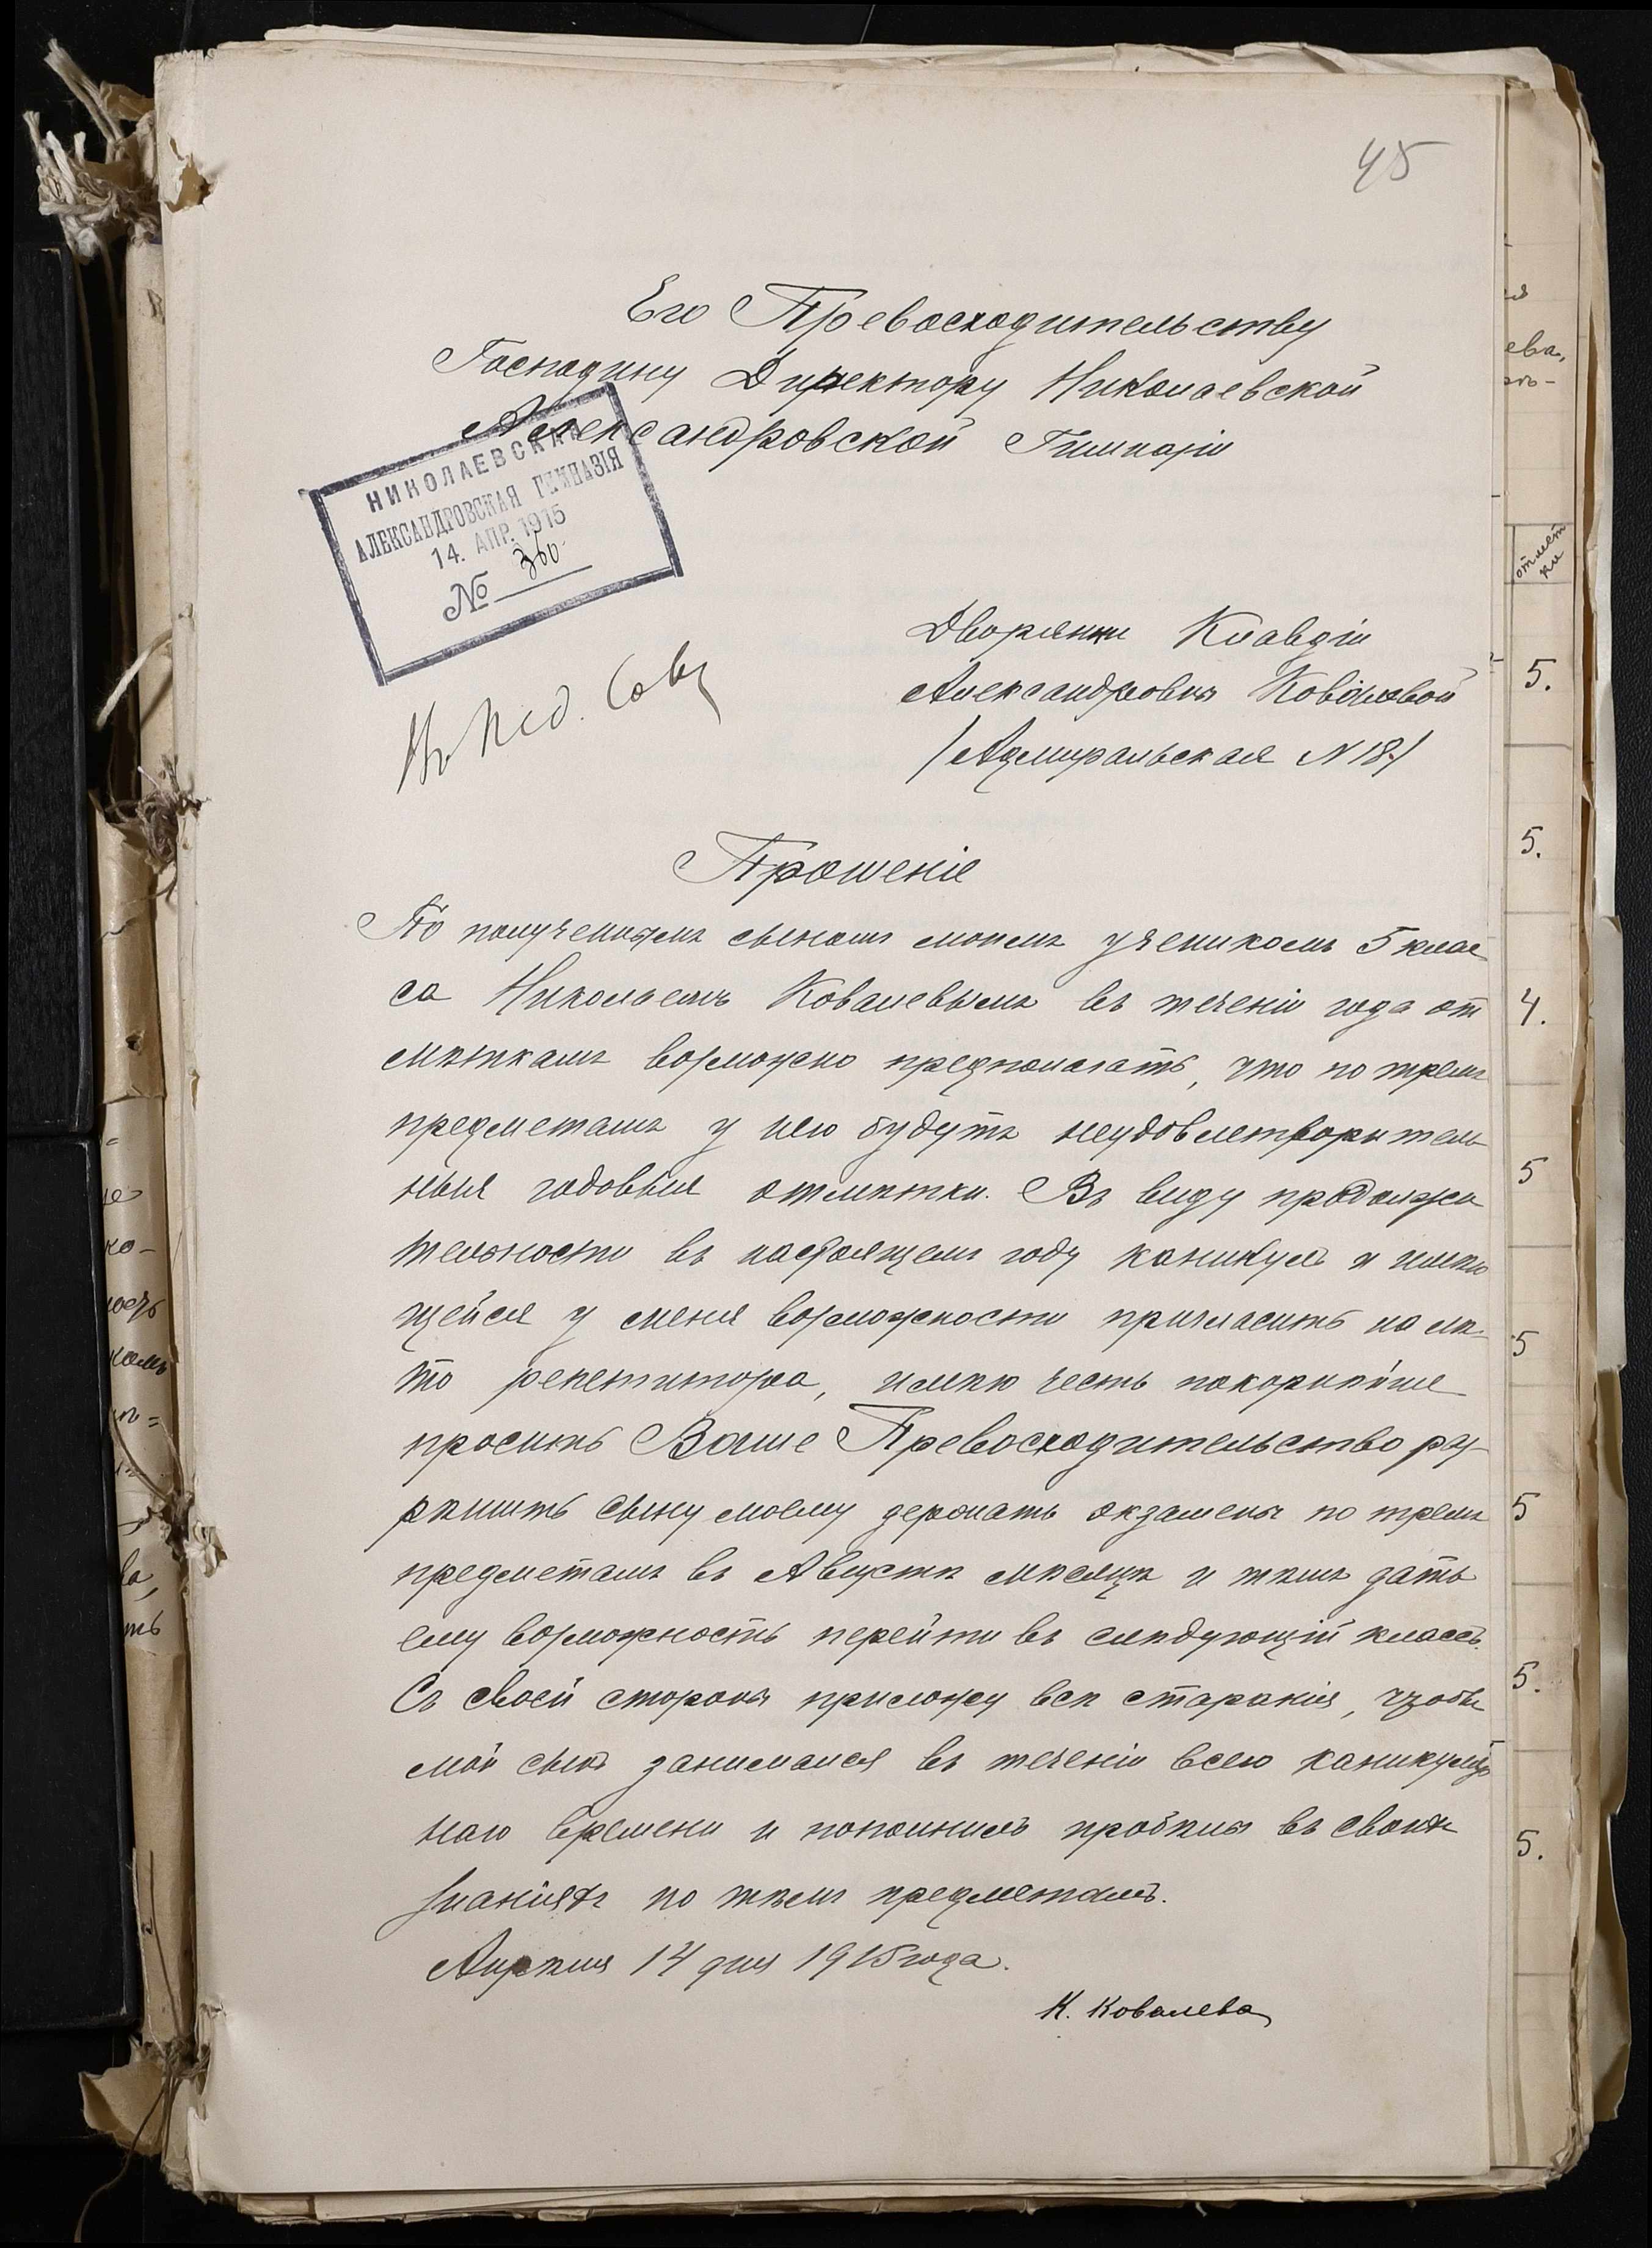 45
Его Превосходительству
Господину Директору Николаевской
Александровской Гимназіи
НИКОЛАЕВСКАЯ
АЛЕКСАНДРОВСКАЯ ГИМНАЗІЯ
14. АПР. 1915
№ 360
Въ Пед. Сов.
Дворянки Клавдіи
Александровны Ковалевой
/Адмиральская N 18./
Прошеніе
По полученнымъ сыномъ моимъ ученикомъ 5 клас
са Николаемъ Ковалевымъ въ теченіи года от
мѣткамъ возможно предполагать, что по тремъ
предметамъ у него будутъ неудовлетворитель
ныя годовыя отмѣтки. Въ виду продолжи
тельности въ настоящемъ году каникулъ и имѣю
щейся у меня возможности пригласить на лѣ-
то репетитора, имѣю честь покорнѣйше
просить Ваше Превосходительство ра-
рѣшить сыну моему держать экзамены по тремъ
предметамъ въ Августѣ мѣсяцѣ и тѣмъ дать
ему возможность перейти въ слѣдующій классъ.
Съ своей стороны приложу всѣ старанія, чтобы
мой сынъ занимался въ теченіи всего каникуляр
наго времени и пополнилъ пробѣлы въ своихъ
знаніяхъ по тѣмъ предметамъ.
Апрѣля 14 дня 1915 года.
К. Ковалева
ева,
отмет
ки
5.
5.
4.
5
5
5
5.
5.